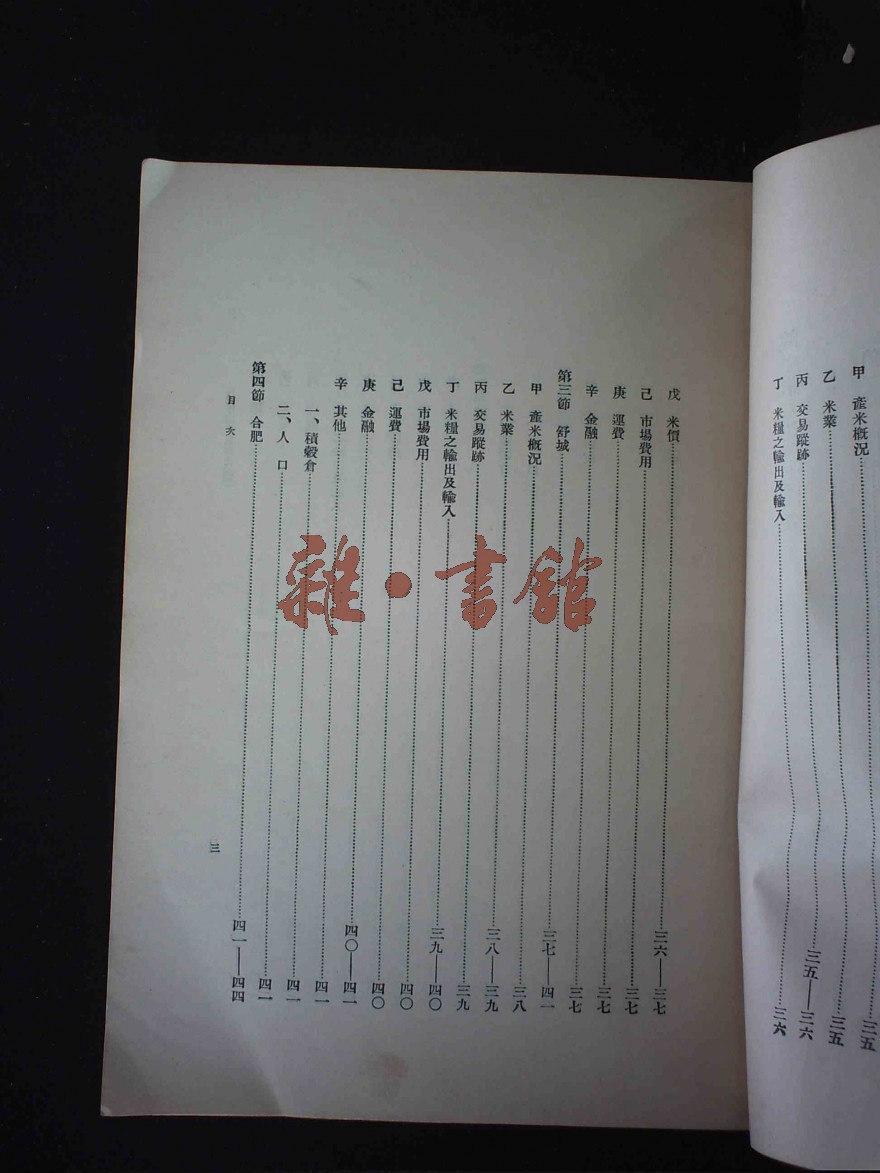 甲 產米概況……三五
乙 米業……三五
丙 交易蹤跡……三五——三六
丁 米糧之輸出及輸入……三六
戊 米價……三六——三七
己 市場費用……三七
庚 運費……三七
辛 金融……三七
第三節 舒城……三七——四一
甲 產米概況……三八
乙 米業……三八——三九
丙 交易蹤跡……三九
丁 米糧之輸出及輸入……三九——四〇
戊 市場費用……四〇
己 運費……四〇
庚 金融……四〇——四一
辛 其他……四一
一、積穀倉……四一
二、人 口……四一
第四節 合肥……四一——四四
目 次
三
雜·書館